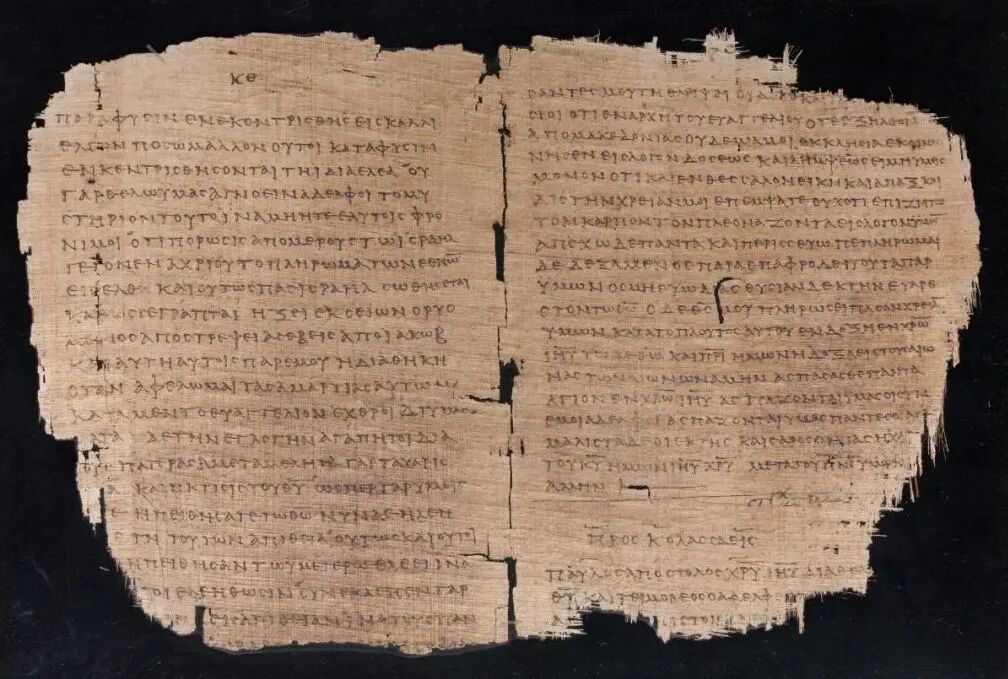 κε
παρα φυσιν ενεκεντρισθης εις καλλι
ελαιον ποσω μαλλον ουτοι κατα φυσιν
ενκεντρισθησονται τηι ιδια ελεα ου
γαρ θελω υμας αγνοειν αδελφοι το μυ
στηριον τουτο ινα μη ητε εαυτοις φρο
νιμοι οτι πωρωσις απο μερους τωι
γεγονεν αχρι ου το πληρωμα των εθνω̅
εισελθη και ουτως πας σωθησεται
καθως γεγραπται ηξει εκ σειων ο ρυο
αποστρεψει ασεβεις απο ιακωβ
αυτη αυτοις παρ εμου η διαθηκη
οταν αφελωμαι τας αμαρτιας αυτων
κατα μεν το ευαγγελιον εχθροι δι υμας
δε την εγλογην αγαπητοι δια
πατρας αμεταμελητα γαρ τα χαρις
και η κλησις του θ̅υ̅ ωσπερ γαρ υμεις
ηπειθησατε τω θ̅ω̅ νυν δε ηλεη
τη τουτων απιθια ουτως και ουτοι
ηπειθησαν τω υμετερω ελεει ινα
ελεηθωσιν συνεκλεισεν γαρ

μου τη θλιψει
σιοι οτι εν αρχη του ευαγγελιου οτε εξηλθον
απο μακεδονιας ουδεμια μοι εκκλησια εκοινω
νησεν εις λογον δοσεως και λημψεως ει μη υμεις
μονον οτι και εν θεσσαλονεικη και απαξ και
δις την χρειαν μοι επεμψατε ουχ οτι επιζητω
τον καρπον τον πλεοναζοντα εις λογον υμων
απεχω δε παντα και περισσευω πεπληρωμαι
δε δεξαμενος παρα επαφροδειτου τα παρ
υμων οσμην ευωδιας θυσιαν δεκτην ευαρε
στον τω θ̅ω̅ ο δε θ̅ς̅ μου πληρωσει πασαν χρεια̅
υμων κατα το πλουτος αυτου εν δοξη εν χ̅ρ̅ω̅
ι̅η̅υ̅ τω δε θ̅ω̅ και π̅ρ̅ι̅ ημων η δοξα εις τους αιω
νας των αιωνων αμην ασπασασθε παντα
αγιον εν χ̅ρ̅ω̅ ι̅η̅υ̅ ασπαζονται υμας οι συν
εμοι αδελφοι ασπαζονται υμας παντες οι αγι
μαλιστα δε οι εκ της καισαρος οικιας η χα
του κ̅υ̅ ημων ι̅η̅υ̅ χ̅ρ̅υ̅ μετα του π̅ν̅ς̅ υμων
αμην
προς κολασσαεις
παυλος αποστολος χ̅ρ̅υ̅ ι̅η̅υ̅ δια θε
θ̅υ̅ και τειμοθεος ο αδελφ